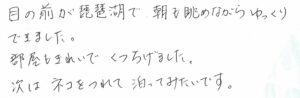 目の前が琵琶湖で、朝も眺めながらゆっくり
できました。
部屋もきれいで くつろげました。
次は ネコをつれて 泊ってみたいです。